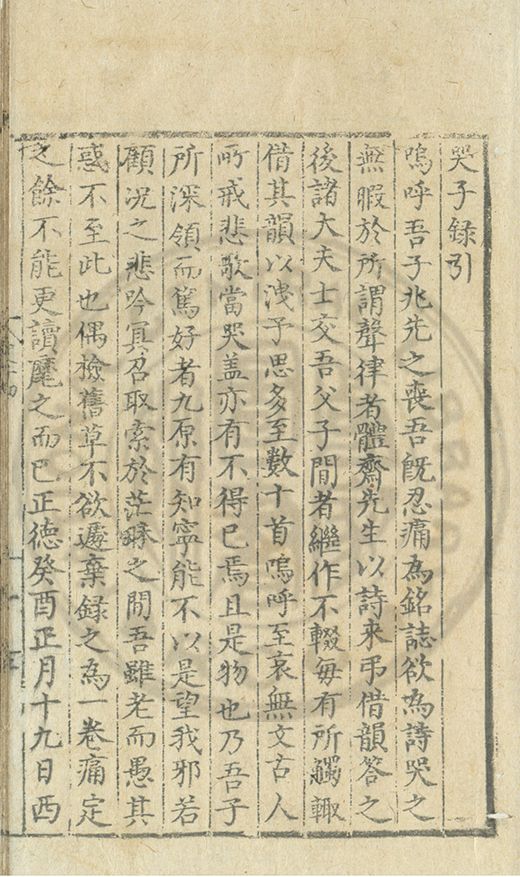 哭子録引
嗚呼吾子兆先之喪吾既忍痛為銘誌欲為詩哭之
無暇於所謂聲律者體齋先生以詩来弔借韻答之
後諸大夫士交吾父子間者繼作不輟每有所觸輙
借其韻以洩予思多至數十首嗚呼至哀無文古人
所戒悲歌當哭盖亦有不得已焉且是物也乃吾子
所深領而篤好者九原有知寧能不以是望我邪若
顧况之悲吟冥召取索於茫昧之間吾雖老而愚其
惑不至此也偶檢舊草不欲遽棄録之為一卷痛定
之餘不能更讀麾之而已正德癸酉正月十九日西